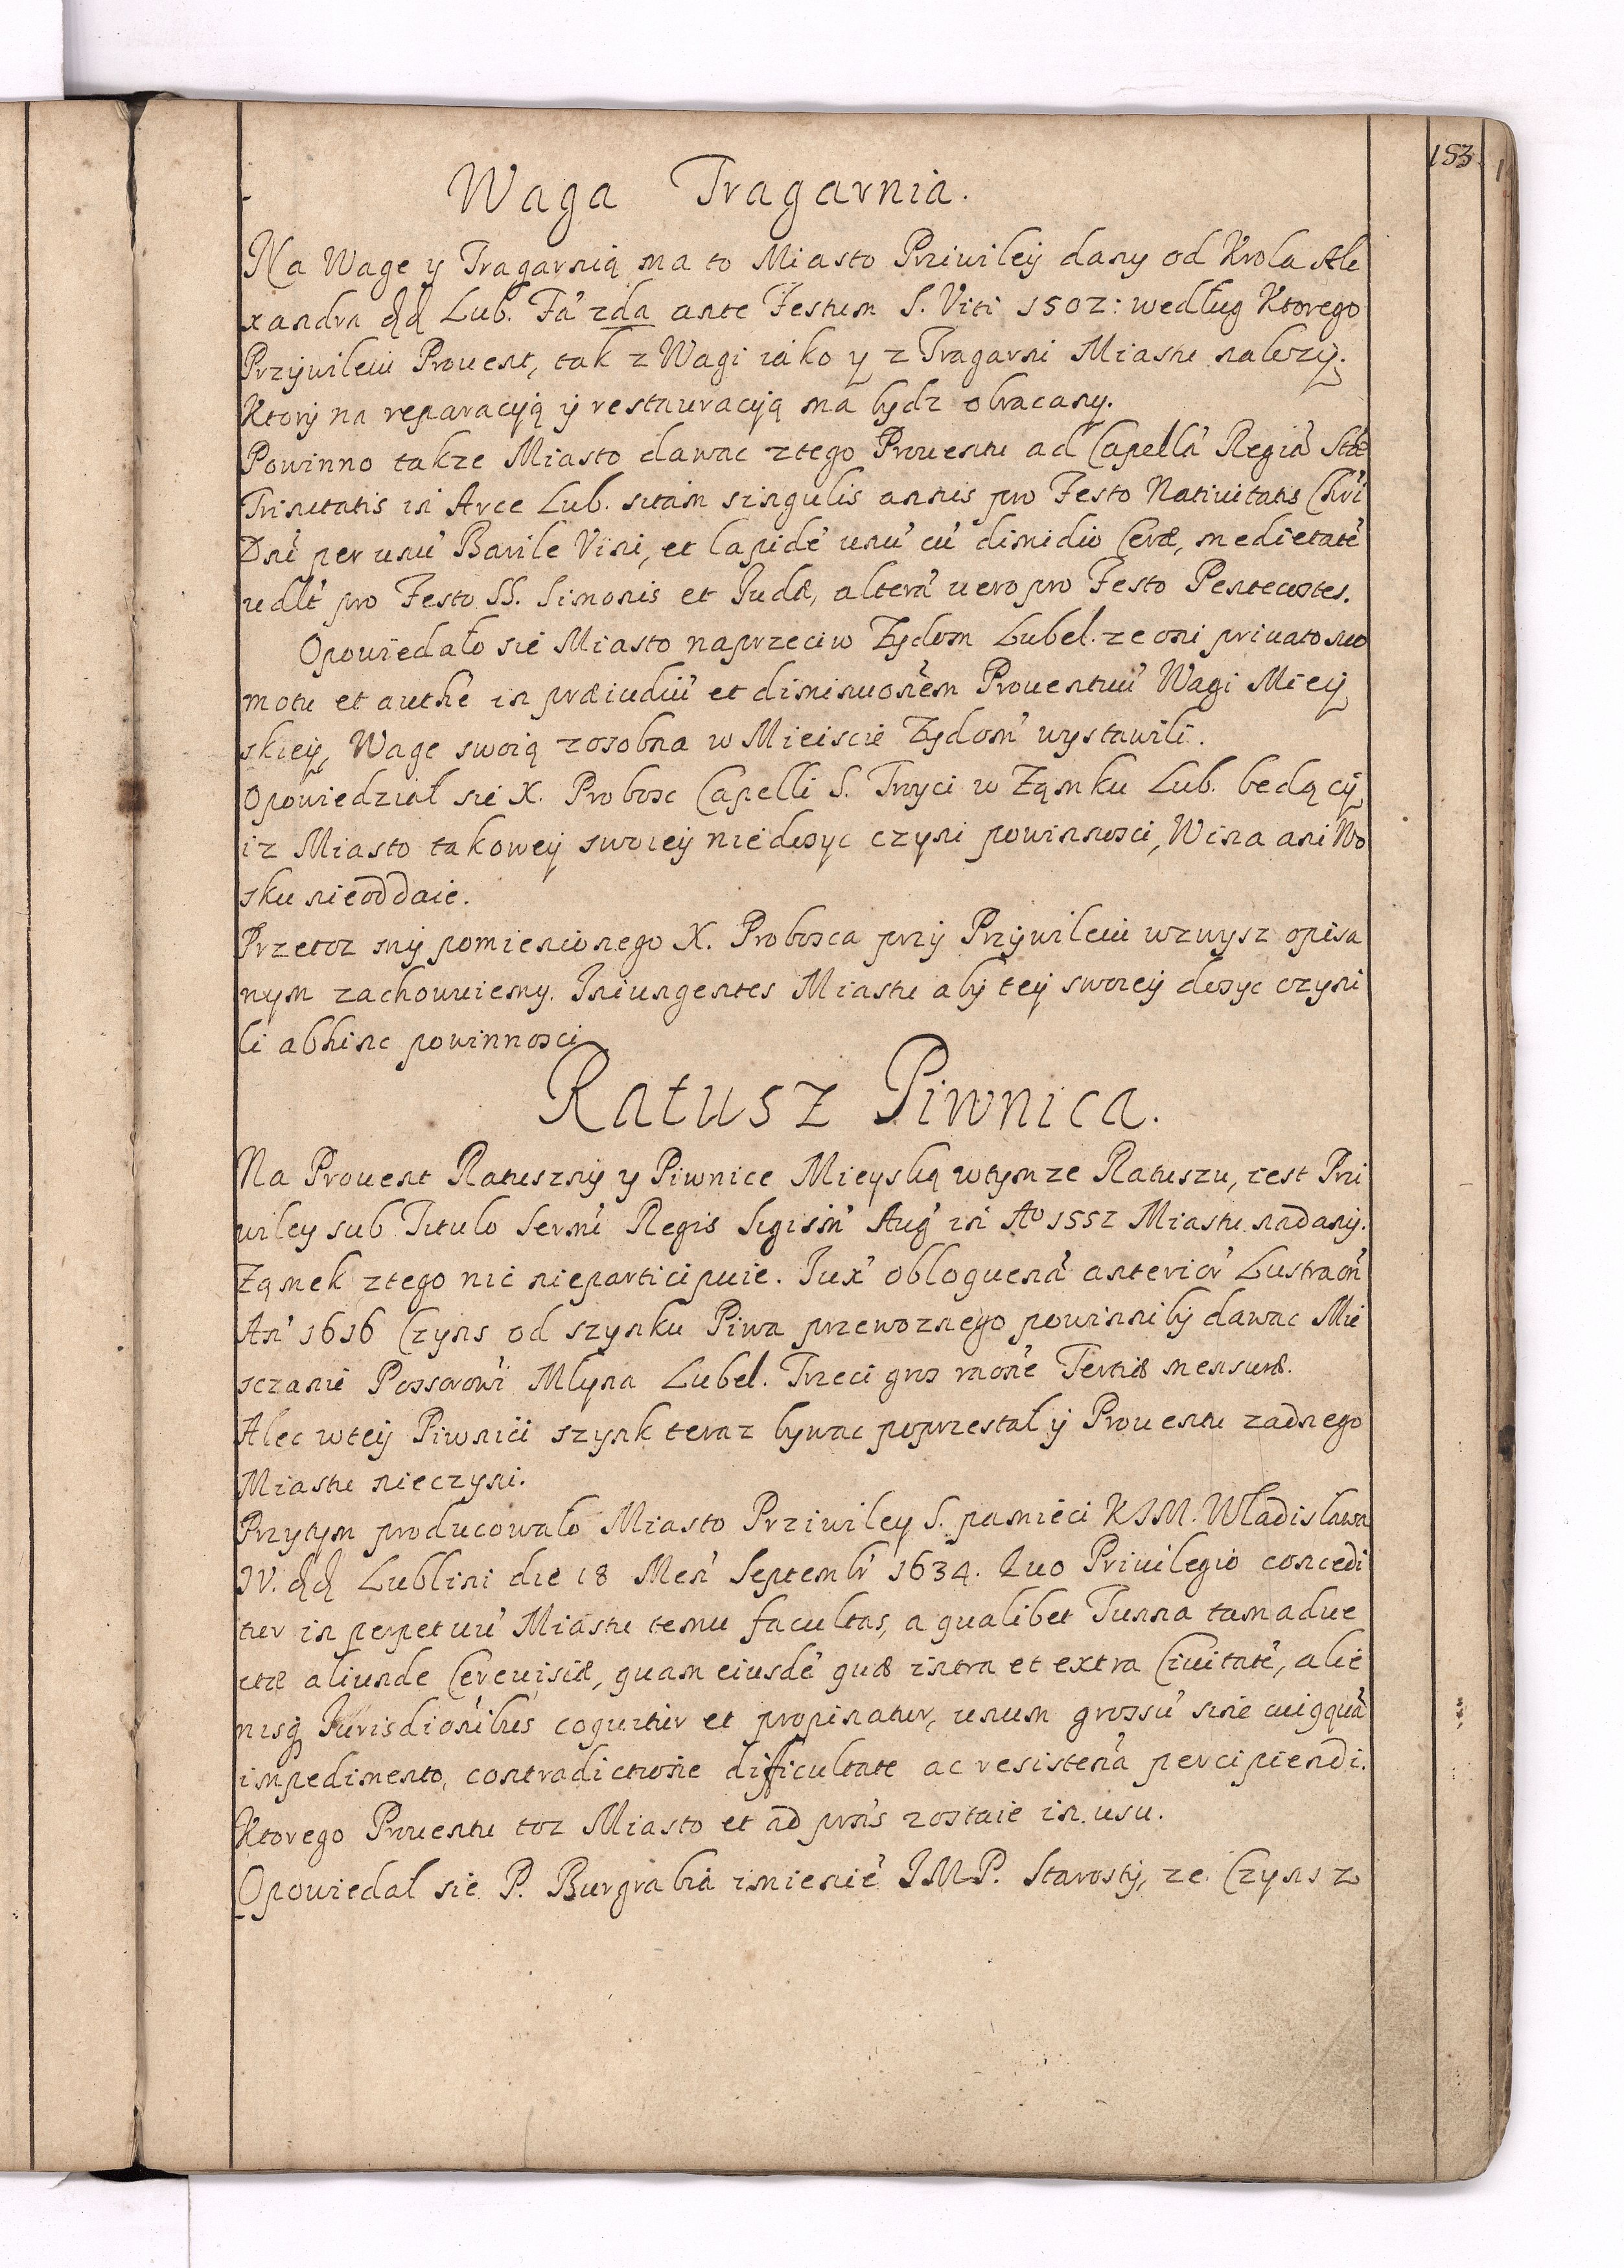 153
Waga Tragarnia.
Na Wage y Tragarnią ma to Miasto Priwiley dany od Krola Ale
xandra dd Lub. Fa' 2da ante Festum S. Viti 1502: według Ktorego
Przywileiu Prouent, tak z Wagi iako y z Tragarni Miastu należy.
Ktory na reparacyją y restauracyją ma bydz obracany.
Powinno takze Miasto dawac ztego Prouentu ad Capellā Regiā Stæ
Trinitatis in Arce Lub. sitam singulis annis pro Festo Natiuitatis Chri
Dni per unū Barile Vini, et lapidē unū cū dimidio Ceræ, medietatē
udlt pro Festo SS. Simonis et Judæ, alterā uero pro Festo Pentecostes.
Opowiedało sie Miasto naprzeciw Zydom Lubel. ze oni priuato suo
motu et authe in præiudiū et diminuonem Prouentuū Wagi Miey
skiey, Wage swoią zosobna w Mieiscie Zydom wystawili.
Opowiedział sie X. Probosc Capelli S. Troyci w Ząmku Lub. będący
iz Miasto takowey swoiey niedosyc czyni powinnosci, Wina ani Wo
sku nieoddaie.
Przetoz my pomienionego X. Probosca przy Przywileiu wzwysz opisa
nym zachowuiemy. Iniungentes Miastu aby tey swoiey dosyc czyni
li abhinc powinnosci
Ratusz Piwnica.
Na Prouent Ratuszny y Piwnice Mieyską wtymze Ratuszu, iest Pri
wiley sub Titulo Sermi Regis Sigism' Aug' in Ao 1552 Miastu nadany.
Ząmek ztego nic nieparticipuie. Jux' obloquenā anterior' Lustraon'
An' 1616 Czyns od szynku Piwa przewoznego powinni by dawac Mie
sczanie Possorowi Młyna Lubel. Trzeci gros raone Tertiæ mensuræ.
Alec wtey Piwnici szynk teraz bywac poprzestał y Prouentu zadnego
Miastu nieczyni.
Przytym producowało Miasto Priwiley S. pamieci KJM. Władisława
IV. dd Lublini die 18 Men' Septembr' 1634. Quo Priuilegio concedi
tur in perpetuū Miastu temu facultas, a qualibet Tunna tam adue
ctæ aliunde Cereuisiæ, quam eiusdē quæ intra et extra Ciuitatē, alie
nisq Jurisdionibus coquitur et propinatur, unum grossū sine cuiqquā
impedimento, contradictione difficultate ac resistenā percipiendi.
Ktorego Prouentu toz Miasto et ad prns zostaie in usu.
Opowiedał sie P. Burgrabia imienie JMP. Starosty, ze Czyns z